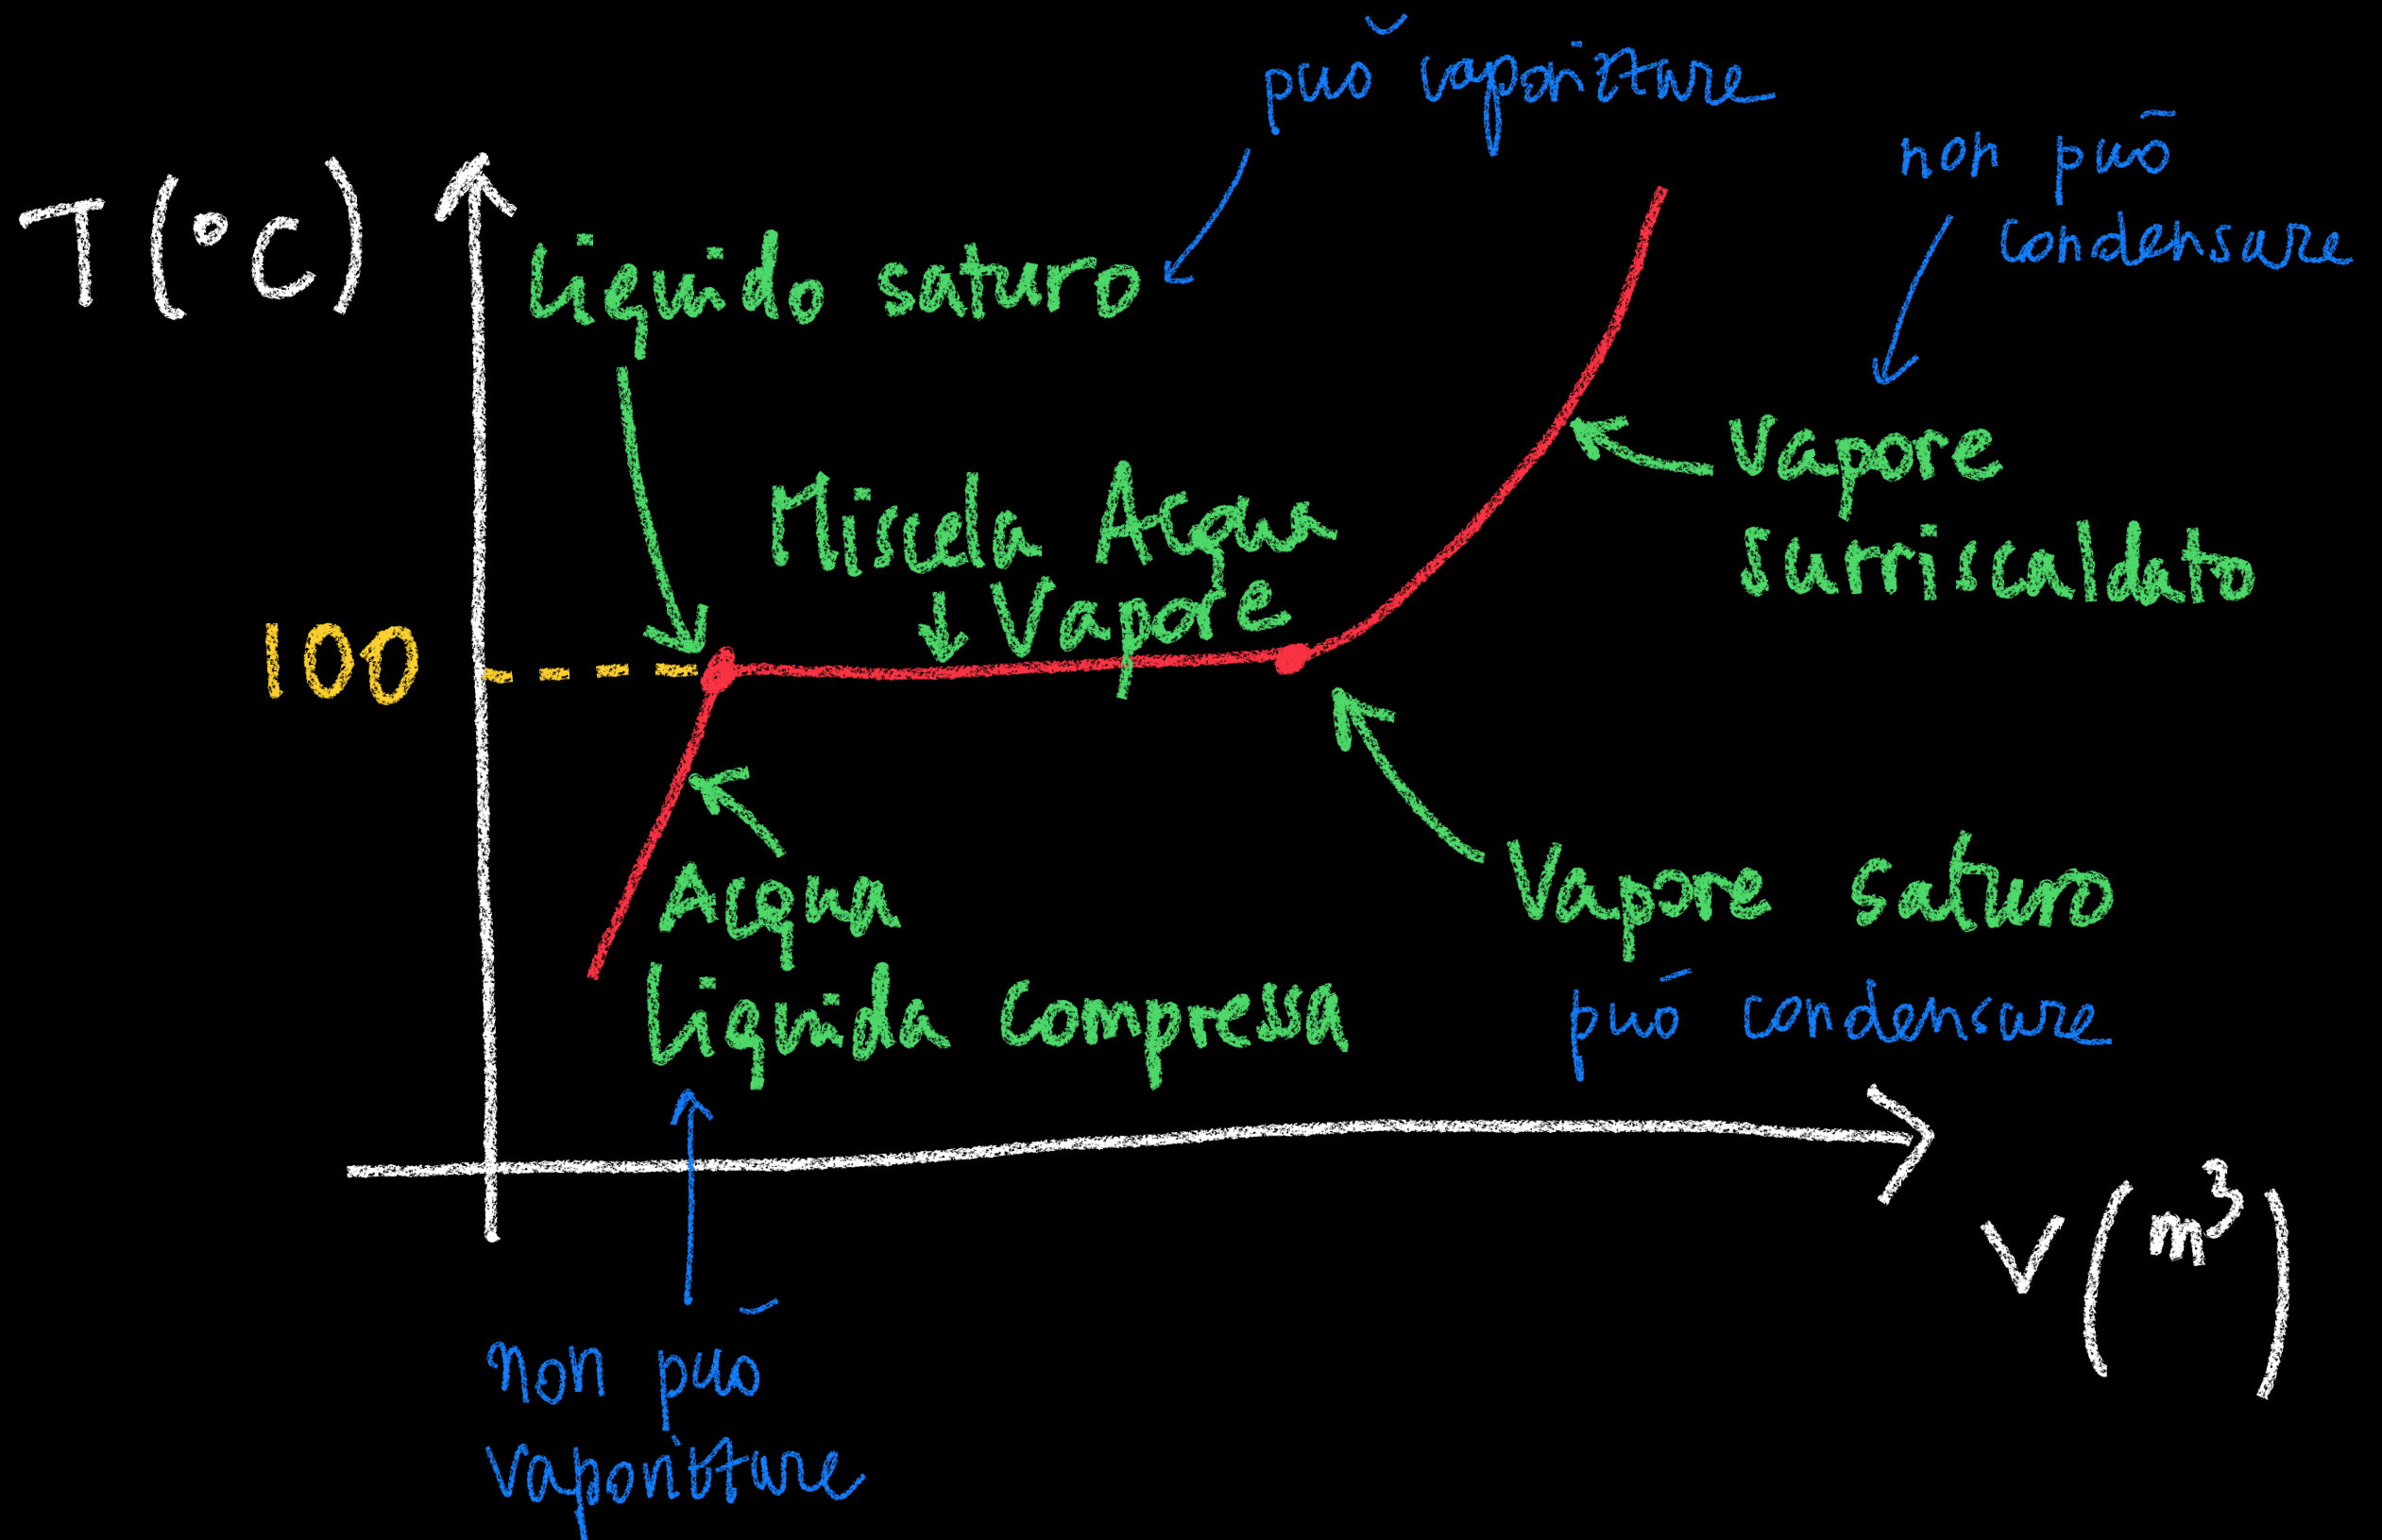 può vaporizzare
non può
condensare
T(°C)
Liquido saturo
Vapore
surriscaldato
Miscela Acqua
Vapore
100
Acqua
Liquida Compressa
Vapore saturo
può condensare
V(m³)
non può
vaporizzare